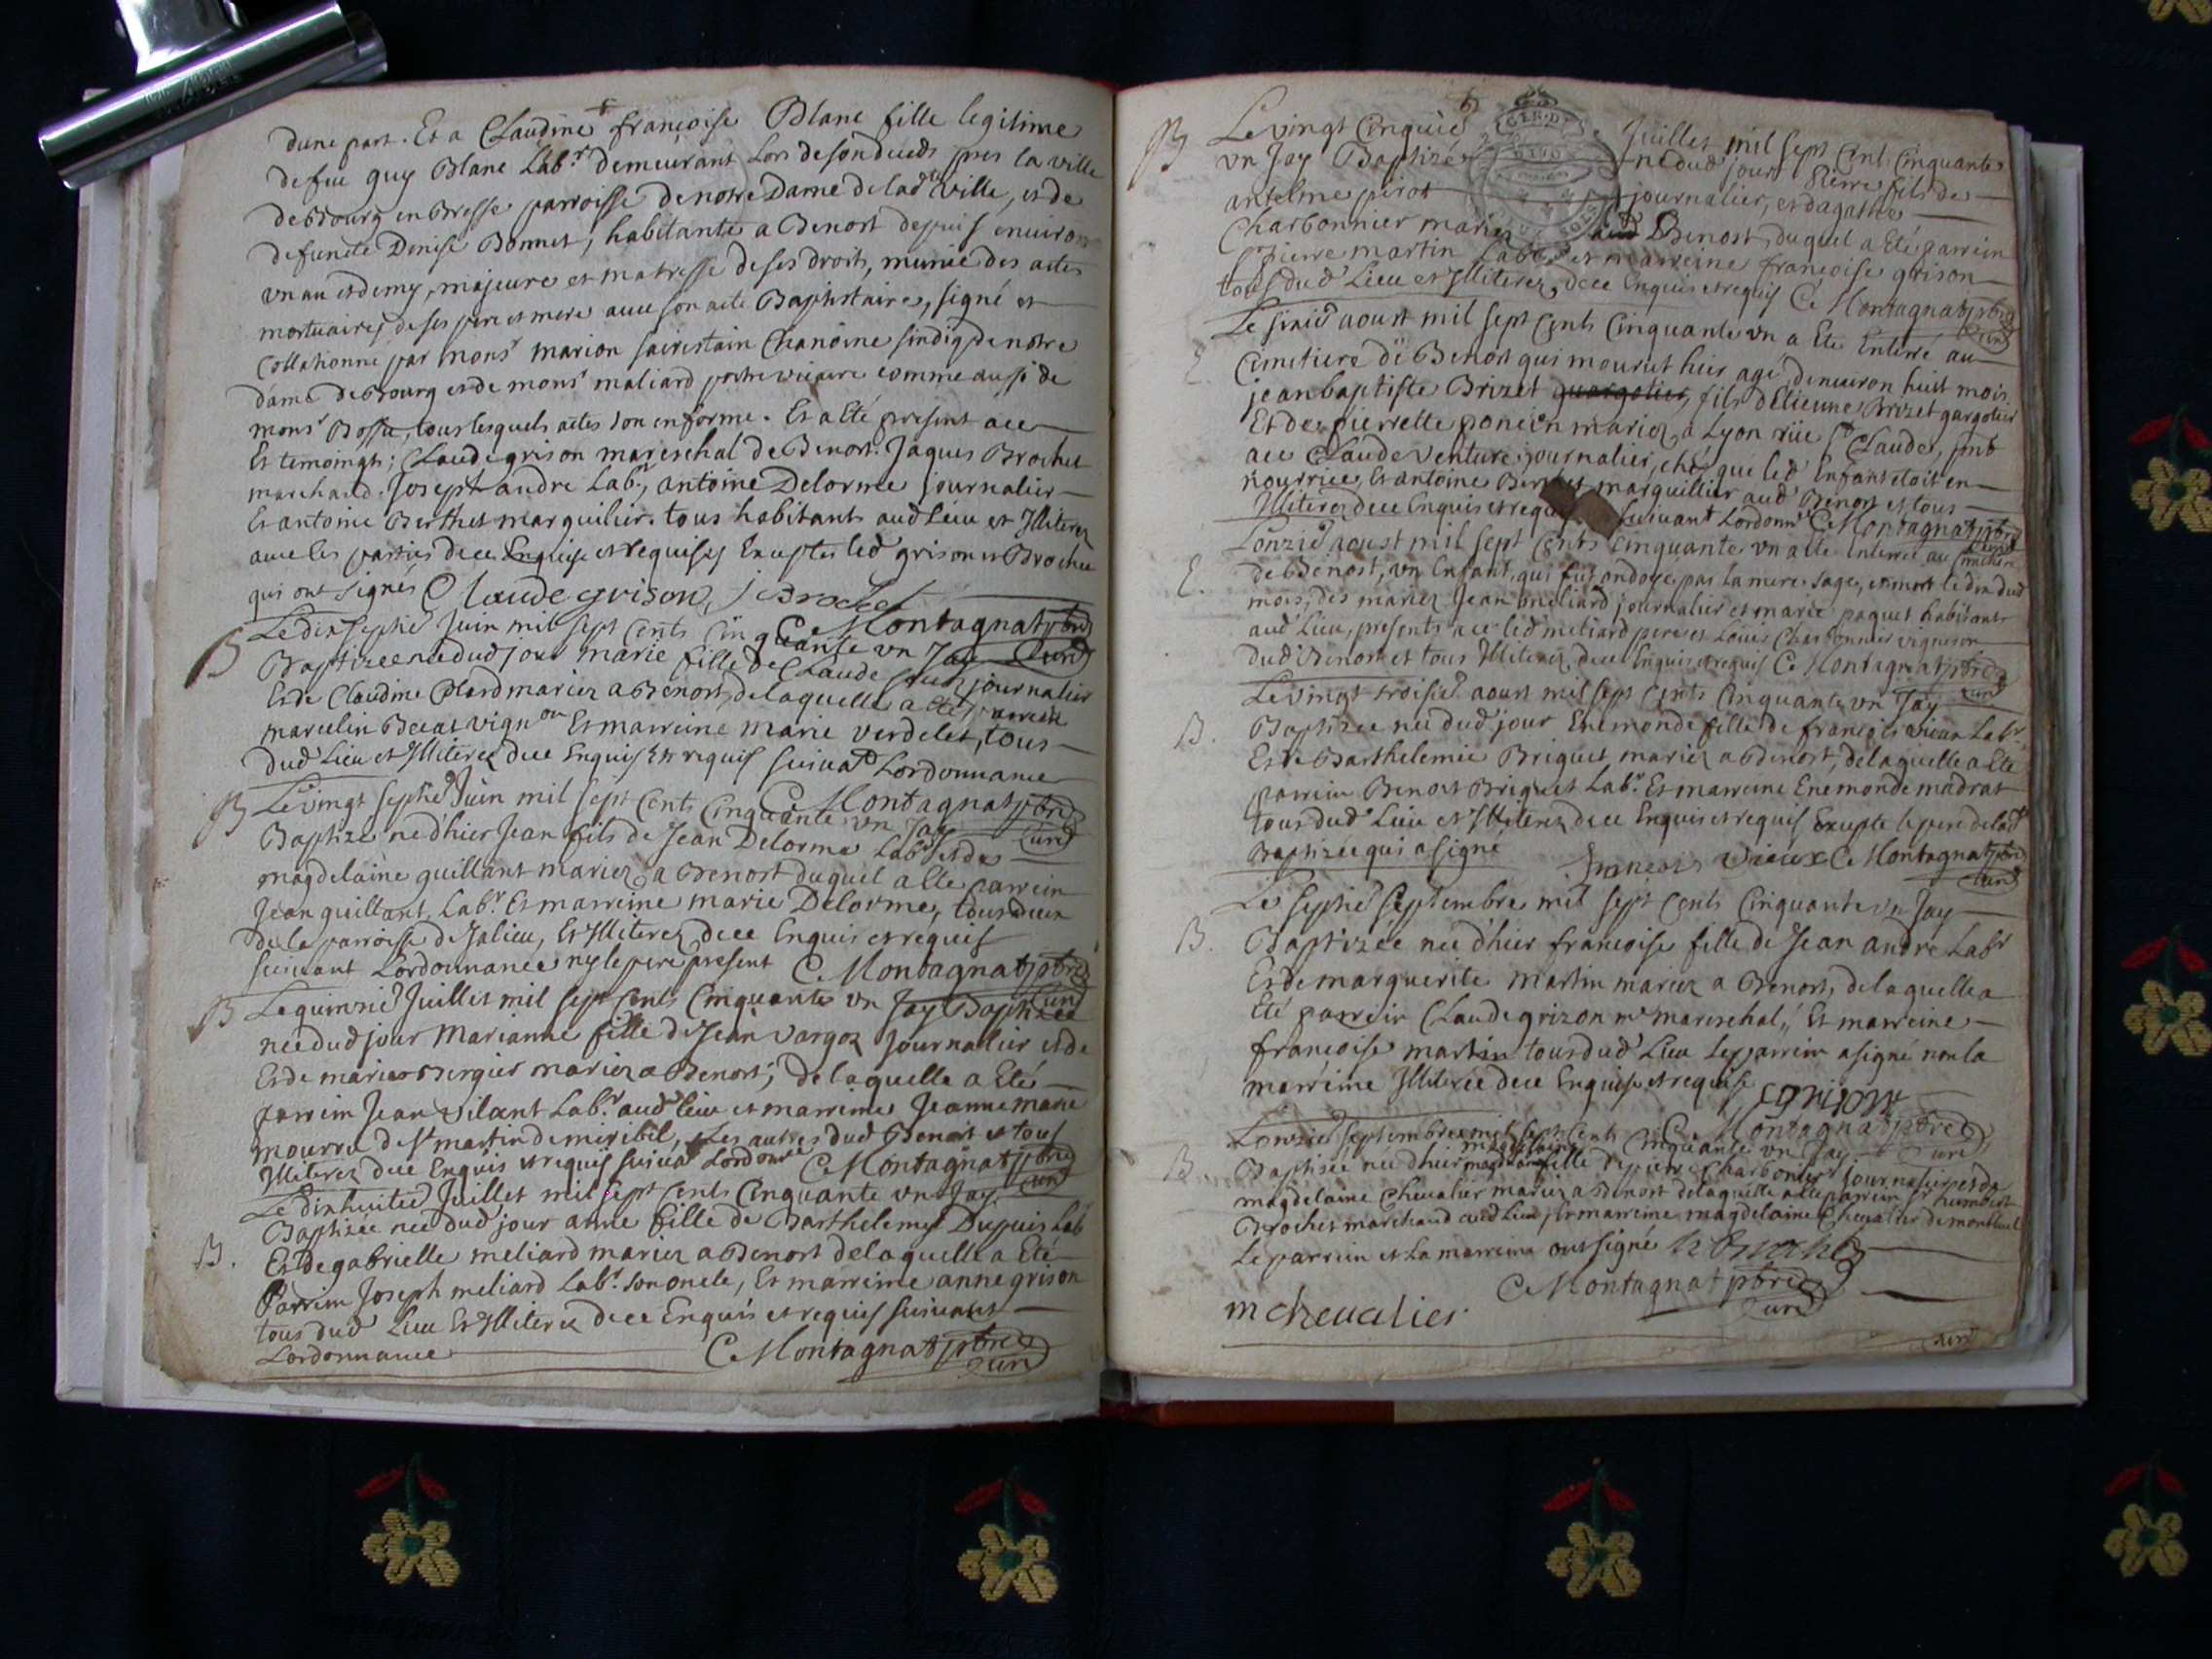 dune part. Et a Claudine françoise Blanc fille legitime
defeu guy Blanc Lab.r demeurant Lors desondeceds pres la ville
deBourg en Bresse parroisse denotre Dame delad.te ville, et de
defuncte Denise Bonnet, habitante a Benost depuis environ
vn an et demy, majeure et matresse deses droits, munie des actes
mortuaires deses pere et mere avec son acte Baptistaire, signé et
Collationné par mons.r marion sacristain Chanoine sindiq de notre
dame deBourg et de mons.r maliard prtre vicaire comme aussi de
mons.r Bossu, tous lesquels actes son en forme. Et a Eté present a ce
Et temoingts; Claude grison mareschal de Benost. Jaques Brochet
marchand. Joseph andre Lab.r, antoine Delorme Journalier
Et antoine Berthet marguilier. tous habitants aud Lieu et Illiterez
avec les parties dece Enquise et requises Exceptes led grison et Brochet
qui ont signés Claude grison, j Brochet
C Montagnat ptre curé
B Le dixseptie Juin mil sept cents cinquante vn Jay
Baptizee nee dud jour marie fille de Claude journalier
Et de Claudine Colard mariez a Benost, delaquelle a Eté parrein
marcelin Beccat vign.on Et marreine marie verdelet, tous
dud Lieu et Illiterez dece Enquis et requis suivat Lordonnance
C Montagnat ptre curé
B Le vingt septie Juin mil sept Cents Cinquante vn Jay
Baptizé né d'hier Jean fils de Jean Delorme Lab.r et de
magdelaine guillant mariez a Benost duquel a Eté parrein
Jean guillant Lab.r Et marreine marie Delorme, tous deux
de la parroisse de Jalieu, Et Illiterez de ce Enquis et requis
suivant Lordonnance ny le pere present C Montagnat ptre curé
B Le quinzie Juillet mil sept Cents Cinquante vn Jay Baptizée
née dud jour Marianne fille de Jean vargoz Journalier et de
Et de marie Bergier mariez a Benost; de laquelle a Eté
parrein Jean vilant Lab.r aud lieu et marreine Jeanne marie
mourra de St martin de miribel, Les autres dud Benost et tous
Illiterez dece Enquis et requis suivat Lordonce C Montagnat ptre curé
Le dixhuitie Juillet mil sept Cents Cinquante vn Jay
B. Baptizée née dud jour anne fille de Barthelemy Dupuis Lab
Et de gabrielle meliard mariez a Benost delaquelle a Eté
Parrein Joseph meliard Lab.r son oncle, Et marreine anne grison
tous dud Lieu Et Illiterez de ce Enquis et requis suivant
Lordonnance C Montagnat ptre curé
6
B Le vingt Cinquie Juillet mil sept Cents Cinquante
vn Jay Baptizé né dud jour Pierre fils de
antelme pirot journalier, et d'agathe
Charbonnier mariez aud Benost, duquel a Eté parrein
pierre martin Lab.r et marreine françoise grison
tous dud Lieu et Illiterez, dece Enquis et requis C Montagnat ptre curé
E. Le sixie aoust mil sept Cents Cinquante vn a Eté Enterré au
Cimetiere de Benost qui mourut hier agé denviron huit mois
jean baptiste Brizet fils d'Etienne Brizet gargotier
Et de pierrette poncin mariez a Lyon rüe St Claude, pnt
a ce Claude venture, journalier, chés qui led Enfant etoit en
nourrice, Et antoine marguillier aud Benost et tous
Illiterez dece Enquis et requis suivant Lordonn.ce C Montagnat ptre curé
E. Lonzie aoust mil sept Cents Cinquante vn a Eté Enterré au Cimetiere
de Benost, vn Enfant, qui fut ondoyé par la mere sage, et mort le dix dud
mois, des mariez Jean meliard journalier et marie paquet habitants
aud Lieu, presents a ce led meliard pere et Louis Charbonnier vigneron
dud Benost et tous Illiterez, dece Enquis et requis C Montagnat ptre curé
Le vingt troisie aoust mil sept Cents Cinquante vn Jay
B. Baptizee née dud jour Enemonde fille de françois vieux Lab.r
Et de Barthelemie Briguet mariez a Benost, de laquelle a Eté
parrein Benost Briguet Lab.r Et marreine Enemonde madrat
tous dud Lieu et Illiterez dece Enquis et requis Excepte le pere delad
Baptizée qui a signé françois vieux C Montagnat ptre curé
Le septie septembre mil sept Cents Cinquante vn Jay
B. Baptizée née d'hier françoise fille de Jean andre Lab.r
Et de marguerite martin mariez a Benost, delaquelle a
Eté parrein Claude grizon m.e mareschal, Et marreine
françoise martin tous dud Lieu Le parrein a signé non la
marreine Illiterée dece Enquise et requise C grison
C Montagnat ptre curé
Lonzie septembre mil sept Cents Cinquante vn Jay
B. Baptisée née dhier magdelaine fille de pierre Charbonier journalier et de
magdelaine Chevalier mariez a Benost delaquelle a Eté parrein sr humbert
Brochet marchand aud Lieu, Et marreine magdelaine Chevalier de montluel
Le parrein et La marreine ont signé h Brochet
C Montagnat ptre curé
m chevalier